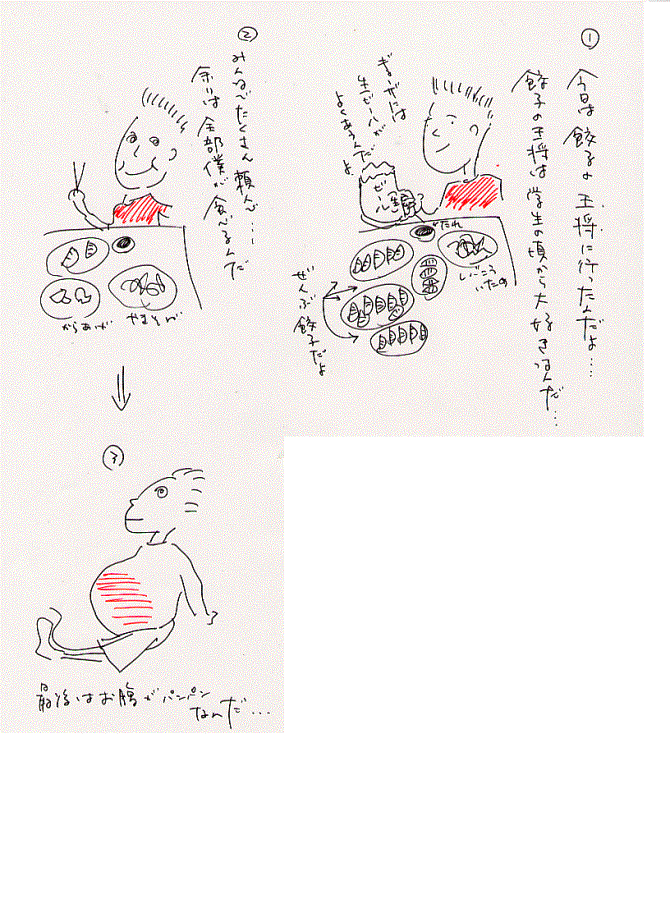 ①
今日は餃子の王将に行ったんだよ....
餃子の王将は学生の頃から大好きなんだ...
ぎょーざには
生ビールが
よくあうんだ
よ
ビール
たれ
レバニラ
いためもの
ぜんぶ餃子だよ
②
みんなでたくさん頼んで...
余りは全部僕が
食べるんだ
からあげ
やきそば
③
最後はお腹がパンパン
なんだ...